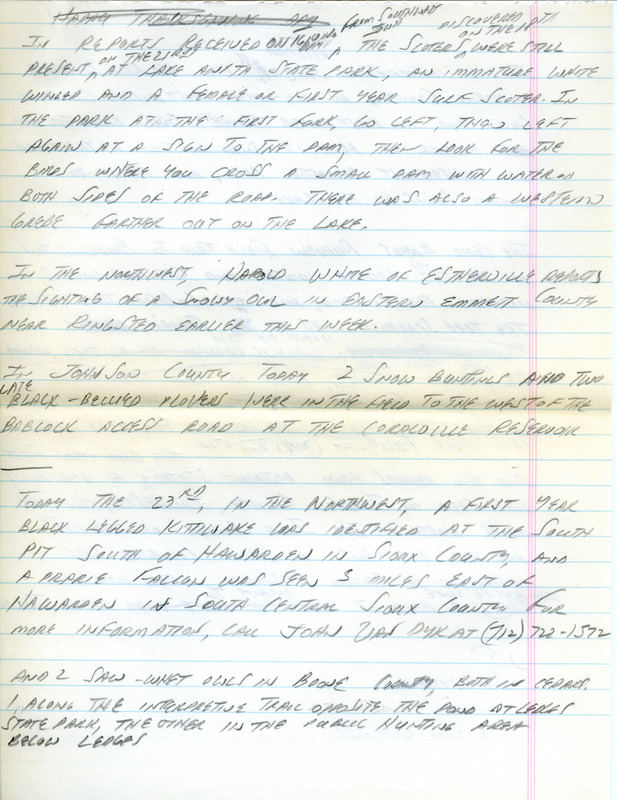 Happy Thanksgiving Day
from Southwest Iowa discovered
In reports received on on the 10th
on the 21st ^ the scoters were still
present ^ at Lake Anita State Park, an immature white
winged and a female or first year surf scoter. In
the park at the first fork, go left, then left
again at a sign to the dam, then look for the
birds where you cross a small dam with water on
both sides of the road. There was also a western
grebe farther out on the lake.
In the northwest, Harold White of Estherville reports
the sighting of a Snowy Owl in Eastern Emmett County
near Ringsted earlier this week.
In Johnson County today 2 snow buntings and two
late
black-bellied plovers were in the field to the west of the
Babcock access road at the Coralville Reservoir
Today the 23rd, in the northwest, a first year
black legged kittiwake was identified at the south
pit south of Hawarden in Sioux County, and
a prarie falcon was seen 5 miles east of
Hawarden in south central Sioux County. For
more information, call John Van Dyk at (712) 722-1572
And 2 saw-whet owls in Boone County, both in cedars.
1, along the interpretive trail opposite the pond at Ledges
State Park, the other in the public hunting area
below Ledges